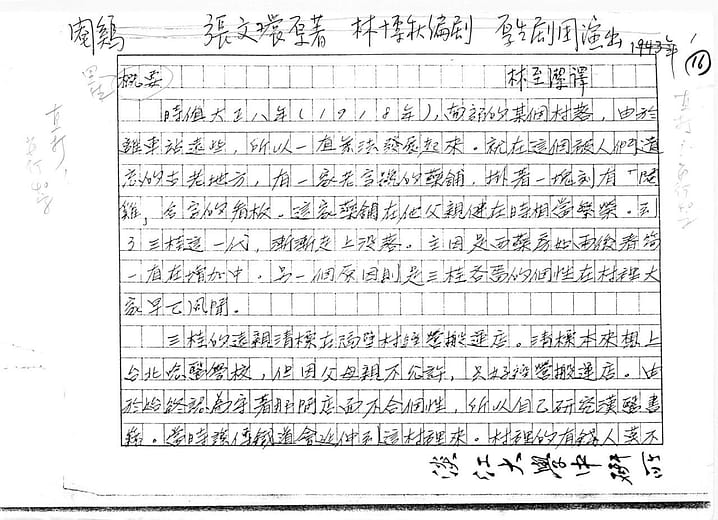 閹鷄 張文環原著 林摶秋編劇 厚生劇団演出 1943年
⑯
概要 林至潔譯
時值大正八年(1918年),南部的某個村落,由於
離車站遠些,所以一直無法發展起來。就在這個被人們遺
忘的古老地方,有一家老字號的藥鋪,掛著一塊刻有「閹
雞」字的看板。這家藥鋪在他父親健在時相當繁榮。到
了三桂這一代,漸漸走上沒落。主因是西藥房如雨後春筍
一直在增加中。另一個原因則是三桂吝嗇的個性在村裡大
家早已風聞。
三桂的遠親清標在隔壁村經營搬運店。清標本來想上
台北唸醫學校,但因父母親不允許,只好經營搬運店。由
於始終認為守著那間店面不合個性,所以自己研究漢醫書
籍。當時謠傳鐵道會延伸到這村裡來。村裡的有錢人莫不
淡江大學中研所